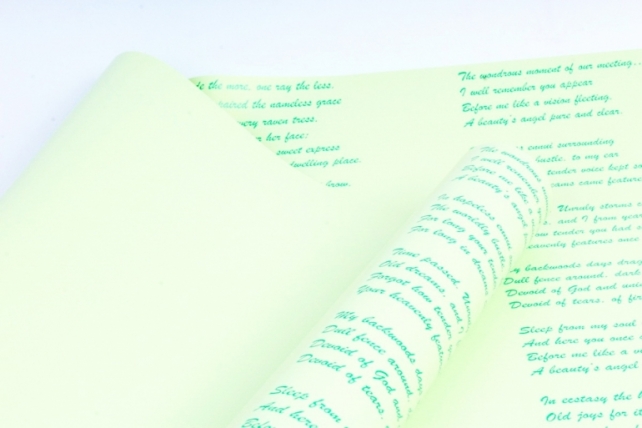 the more, one ray the less.
the nameless grace
every raven tress.
her face;
sweet express
dwelling place.
brow,
The wondrous moment of our meeting...
I well remember you appear
Before me like a vision fleeting,
A beauty's angel pure and clear.
ennui surrounding
bustle, to my ear
tender voice kept
came
Unruly storms
and I from
tender you had
heavenly features
My backwoods days
Dull fence around, dark
Devoid of God and
Devoid of tears, of
Sleep from my soul
And here you once
Before me like a
A beauty's angel
In ecstasy the
Old joys for
The wondrous
I well remember
Before me like
A beauty's
In hopeless ennui
The worldly bustle
For long your
For long in
Time passed.
Old dreams, and
Forgot how tender
Your heavenly
My backwoods
Dull fence around,
Devoid of God and
Devoid of tears,
Sleep from
And here